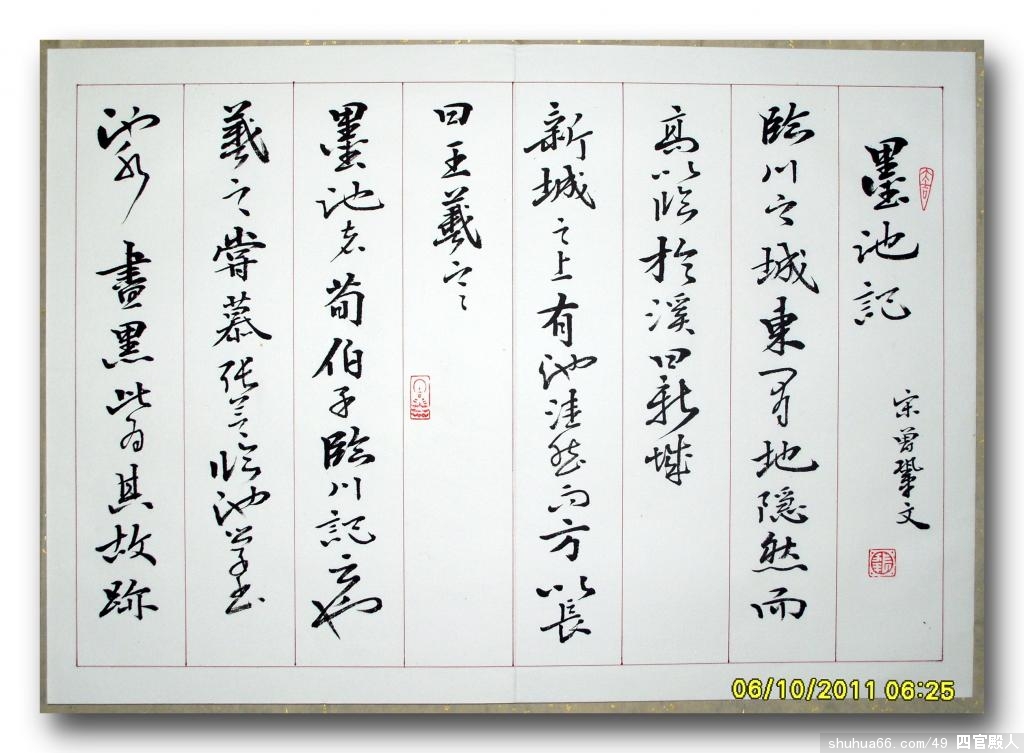 墨池記
宋曾鞏文
臨川之城東有地隱然而
高以臨於溪曰新城
新城之上有池洼然而方以長
曰王羲之之
墨池者荀伯子臨川記云也
羲之嘗慕张芝臨池學書
池水盡黑此為其故跡
06/10/2011 06:25
shuhua66.com/49 四官殿人